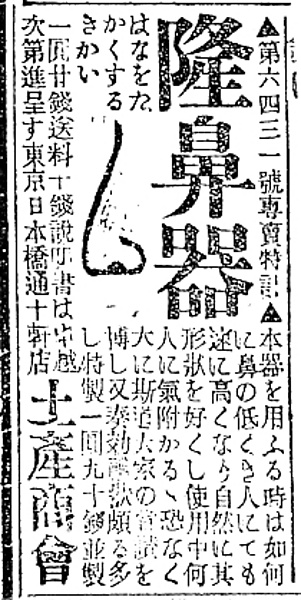 ▲第六四三一號專賣特許▲
隆鼻器
はなをた
かくする
きかい
本器を用ふる時は如何
に鼻の低くき人にても
速に高くなり自然に其
形狀を好くし使用中何
人に氣附かるゝ恐なく
大に斯道大家の賞讃を
博し又奏効狀頗る多
し特製一圓九十錢並製
一圓廿錢送料十錢說明書は申越
次第進呈す東京日本橋通十軒店
土產商會